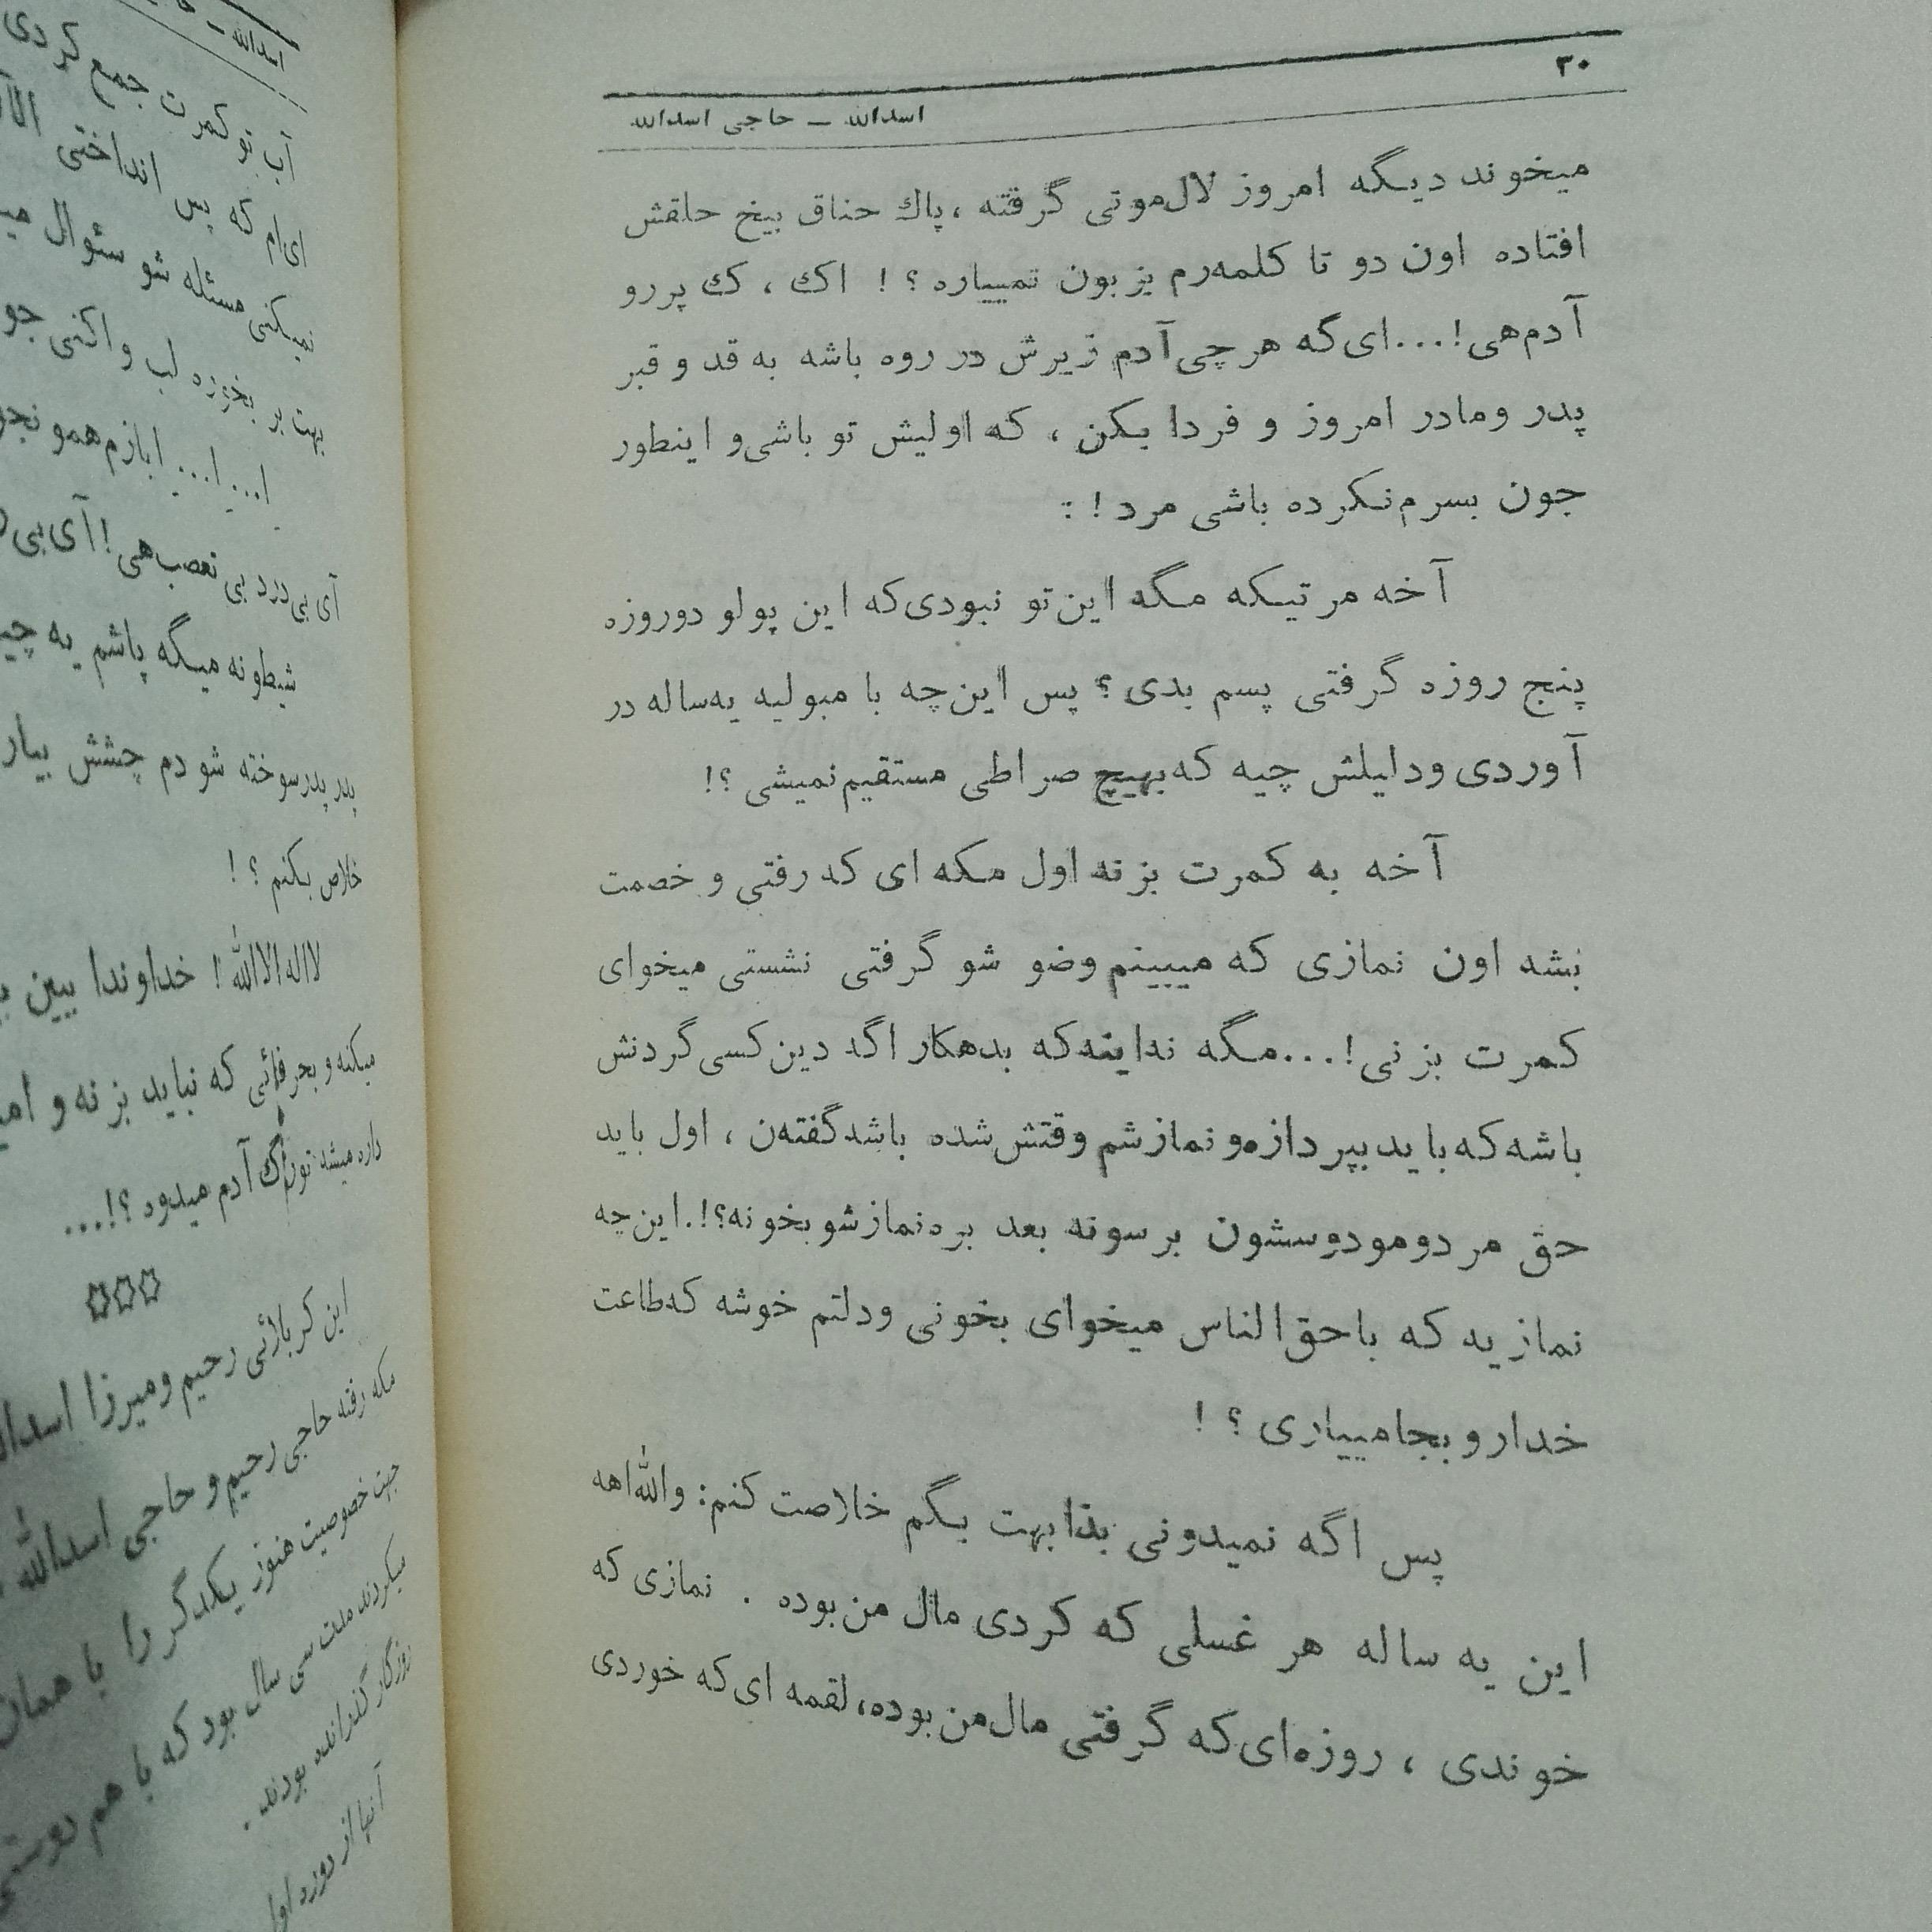 ۳۰
اسدالله – حاجی اسدالله
میخوند دیگه امروز لال‌مونی گرفته ، پاك حناق بیخ حلقش
افتاده اون دو تا کلمه‌رم بز بون نمییاره ؟ ! اك ، ك پررو
آدم‌هی !...ای‌که هرچی‌آدم زیرش در روه باشه به قد و قبر
پدر ومادر امروز و فردا بکن ، که اولیش تو باشی‌و اینطور
جون بسرم‌نکرده باشی مرد ! :
آخه مرتیکه مگه این‌تو نبودی‌که این پولو دوروزه
پنج روزه گرفتی پسم بدی ؟ پس این‌چه با مبولیه یه‌ساله در
آوردی ودلیلش چیه که‌بهیچ صراطی مستقیم‌نمیشی ؟!
آخه به کمرت بزنه اول مکه ای که رفتی و خصمت
بشه اون نمازی که میبینم وضو شو گرفتی نشستی میخوای
کمرت بزنی !...مگه نداینه‌که بدهکار اگه دین‌کسی‌گردنش
باشه‌که‌باید بپردازه‌و نمازشم وقتش‌شده باشدگفته‌ن ، اول باید
حق مردومودوسشون برسونه بعد بره‌نمازشو بخونه؟!.این‌چه
نمازیه که باحق‌الناس میخوای بخونی ودلتم خوشه که‌طاعت
خدارو بجامییاری ؟ !
پس اگه نمیدونی بذا بهت بگم خلاصت کنم: والله‌اهه
این یه ساله هر غسلی که کردی مال من‌بوده . نمازی که
خوندی ، روزه‌ای‌که گرفتی مال‌من‌بوده، لقمه ای‌که خوردی
اسدالله –
آب تو کمرت جمع کردی
ای‌ام که پس انداختی
نمیکنی مسئله شو سئوال
بهت بر بخوره لب واکنی
ا... ا... ابازم‌همو
آی بی‌درد بی تعصب‌هی ! آی بی
شیطونه میگه پاشم یه
پدر پدرسوخته شو دم چشش
خلاص بکنم ؟ !
لااله الاالله ! خداوندا ببین
میکنه و بحرفائی که نباید بزنه و
آدم میدوه ؟!...
✩✩✩
این کربلائی رحیم ومیرزا
مکه رفته حاجی رحیم و حاجی اسدالله
جهت خصوصیت هنوز یکدگر را با همان
میکردند مدت سی سال بود که با هم
روزگار گذرانده بودند .
آنها از دوره